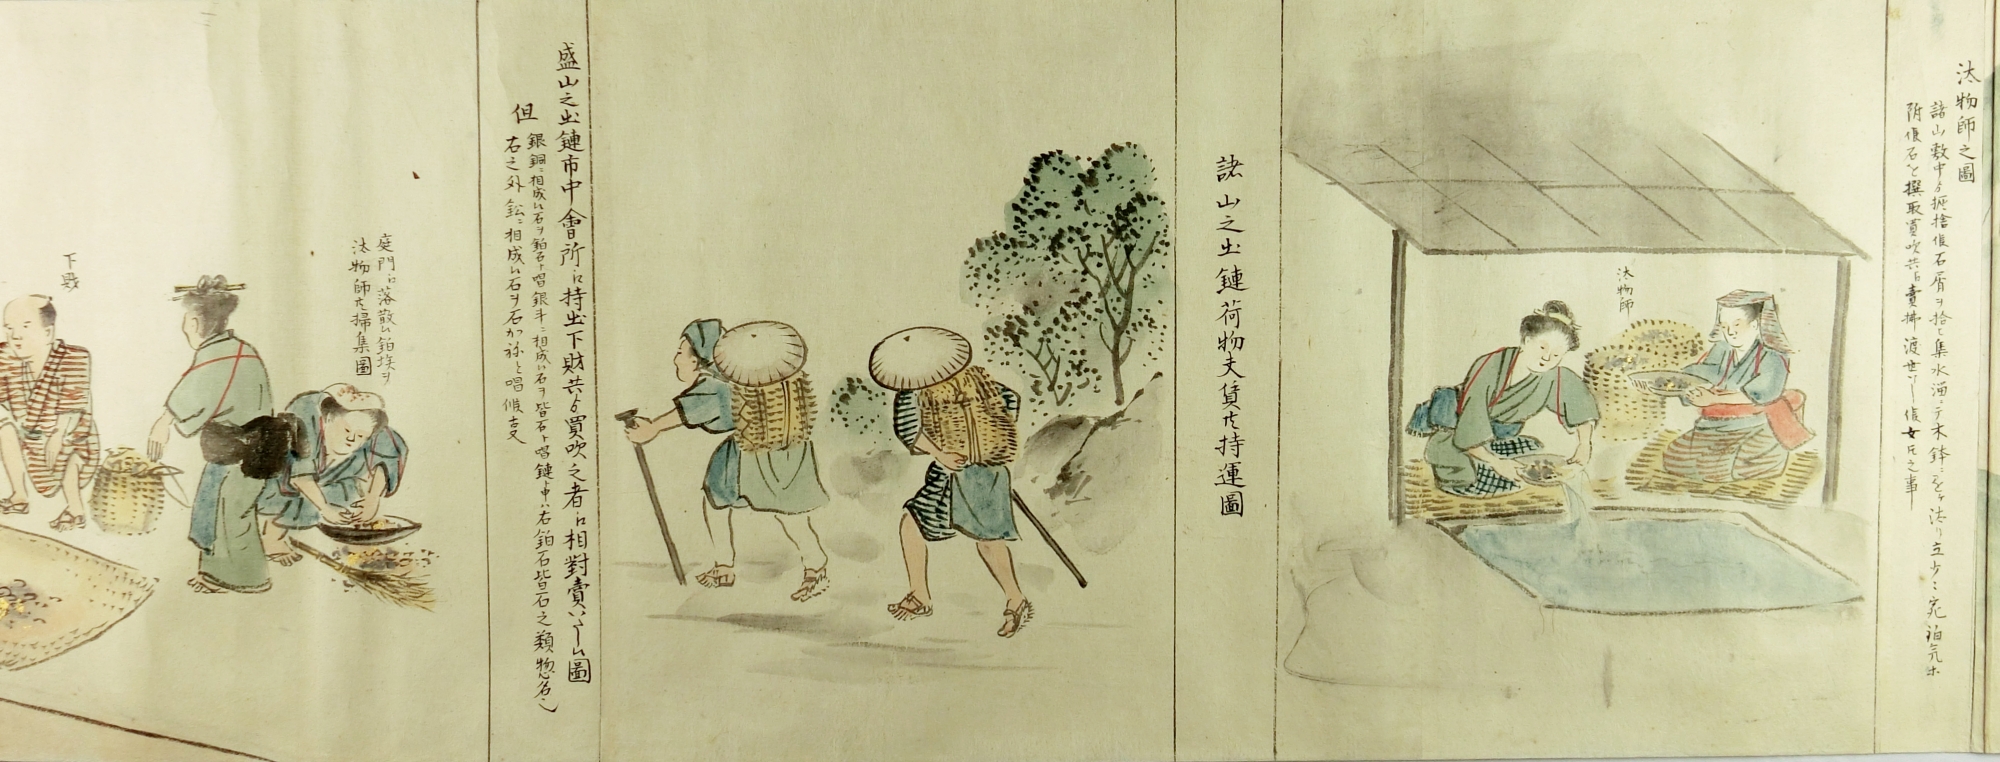 汰物師之圖
諸山敷中ゟ掘捨候石屑ヲ拾ヒ集水溜ニテ木鉢ニ
附候石を撰取買吹共江賣拂渡世いたし候女共之事
汰物師
諸山之出鏈荷物夫賃ニ而持運圖
盛山之出鏈市中會所江持出下財共ゟ買吹之者江相對賣いたし候圖
但
銀銅ニ相成候石ヲ鉑石ト唱銀斗ニ相成候石ヲ皆石ト唱鏈申ハ右鉑石皆石之類惣名也
石之外鉛ニ相成候石ヲ石かねと唱候
庭門江落散候鉑埃ヲ
汰物師共掃集圖
下